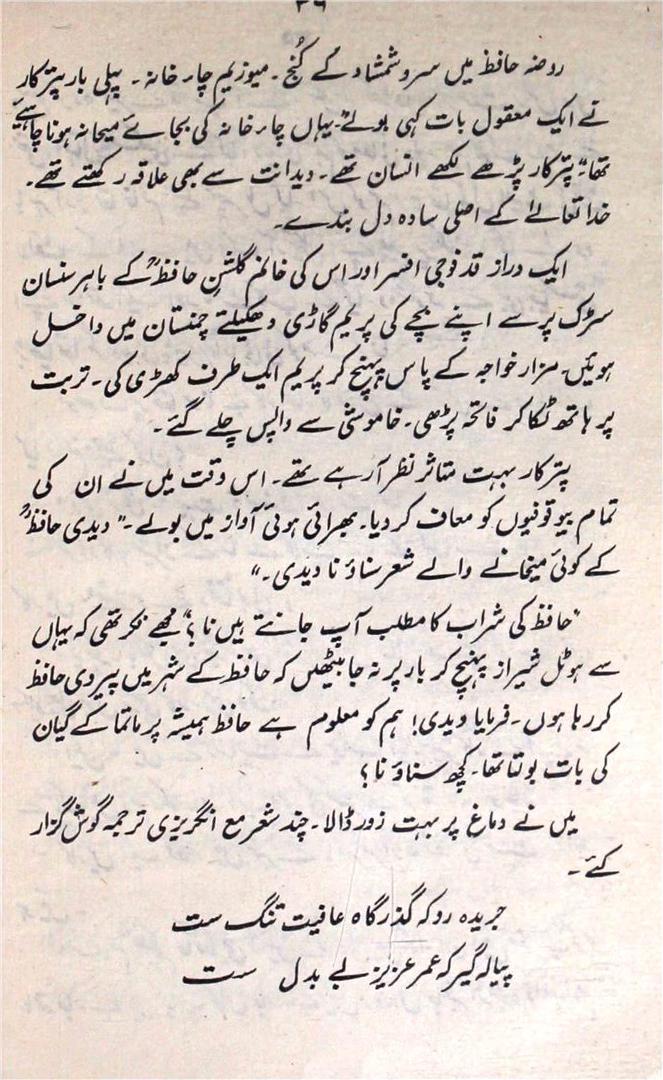 ۳۶
روضہ حافظ میں سرو شمشاد کے کُنج۔ میوزیم چار خانہ۔ پہلی بار پترکار
نے ایک معقول بات کہی بولے "یہاں چار خانہ کی بجائے میخانہ ہونا چاہیئے
تھا" پترکار پڑھے لکھے انسان تھے۔ دیدانت سے بھی علاقہ رکھتے تھے۔
خدا تعالےٰ کے اصلی سادہ دل بندے۔
ایک دراز قد فوجی افسر اور اس کی خانم گلشنِ حافظؒ کے باہر سنسان
سڑک پر سے اپنے بچے کی پریم گاڑی دھکیلتے چمنستان میں داخل
ہوئیں۔ مزار خواجہ کے پاس پہنچ کر پریم ایک طرف کھڑی کی۔ تربت
پر ہاتھ ٹکا کر فاتحہ پڑھی۔ خاموشی سے واپس چلے گئے۔
پترکار بہت متاثر نظر آرہے تھے۔ اس وقت میں نے ان کی
تمام بیوقوفیوں کو معاف کر دیا۔ بھرائی ہوئی آواز میں بولے۔ "دیدی حافظؒ
کے کوئی میخانے والے شعر سناؤ نا دیدی۔"
"حافظ کی شراب کا مطلب آپ جانتے ہیں نا؟" مجھے فکر تھی کہ یہاں
سے ہوٹل شیراز پہنچ کر بار پر نہ جا بیٹھیں کہ حافظ کے شہر میں پیروی حافظ
کر رہا ہوں۔ فرمایا دیدی! ہم کو معلوم ہے حافظ ہمیشہ پرماتما کے گیان
کی بات بولتا تھا۔ کچھ سناؤ نا؟
میں نے دماغ پر بہت زور ڈالا۔ چند شعر مع انگریزی ترجمہ گوش گزار
کئے۔
جریدہ رو کہ گذرگاہ عافیت تنگ ست
پیالہ گیر کہ عمر عزیز بے بدل ست